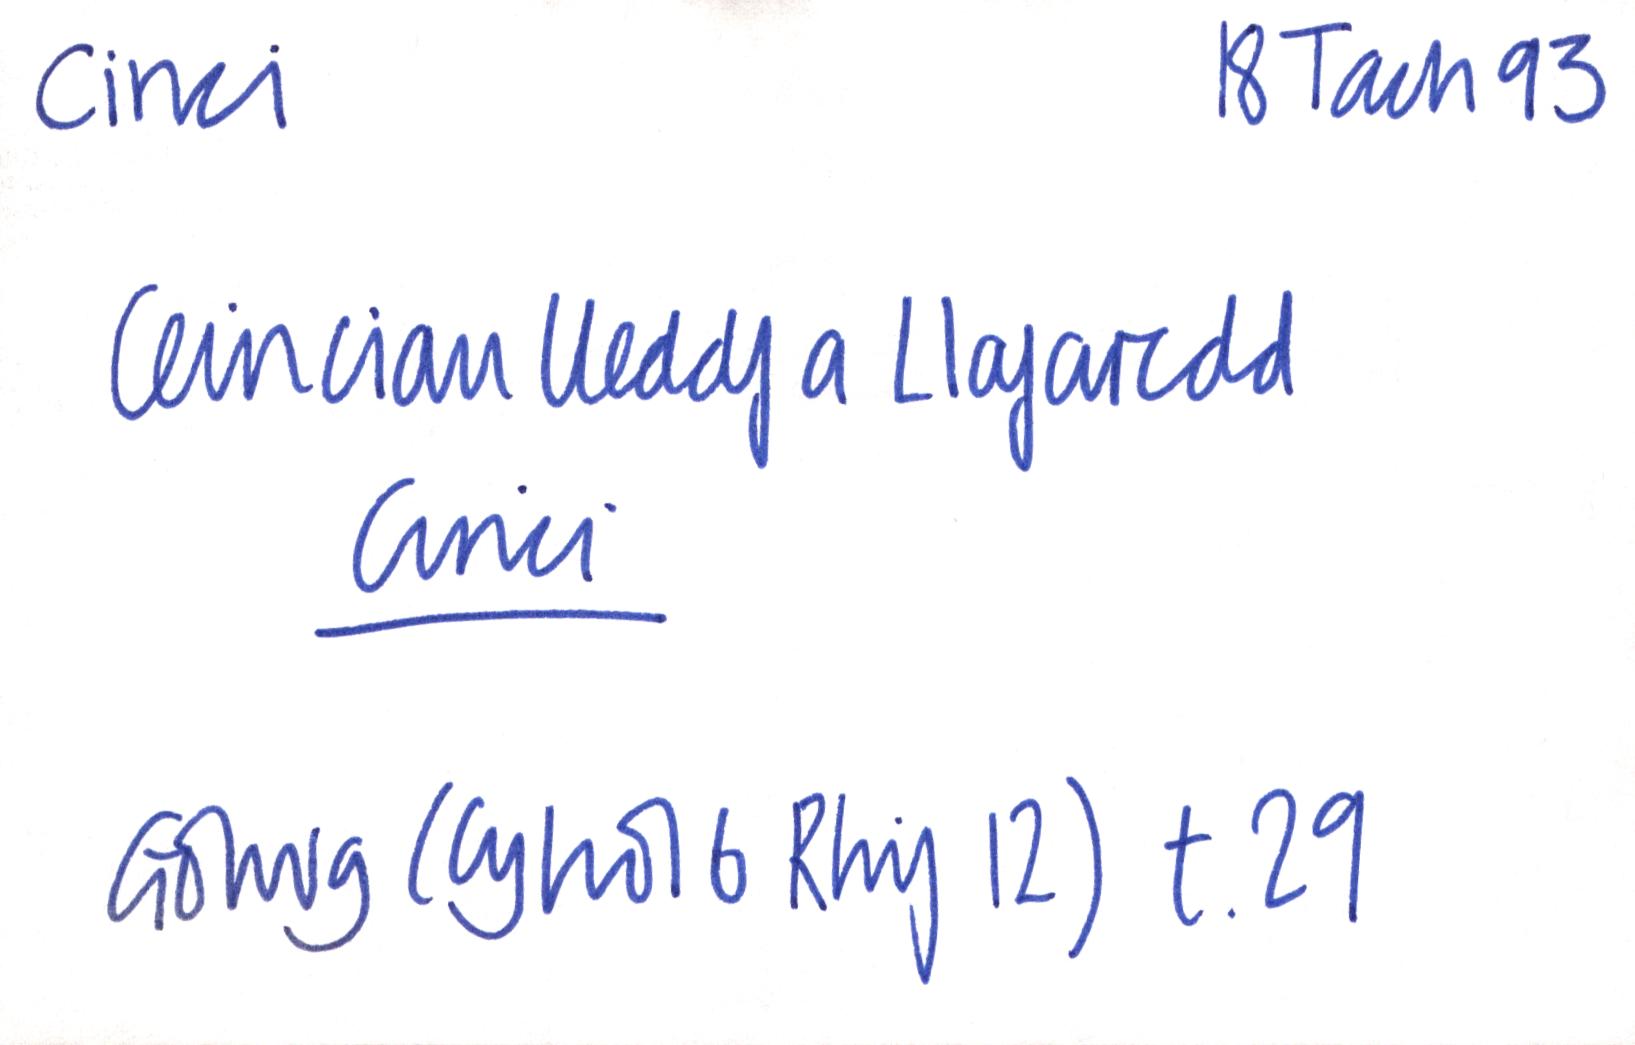 Cinci 18 Tach 93
Ceinciau lleddf a Llafaredd
Cinci
Golwg (Cyfrol 6 Rhif 12) t. 29